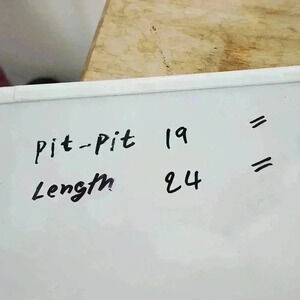 pit-pit 19 =
Length 24 =